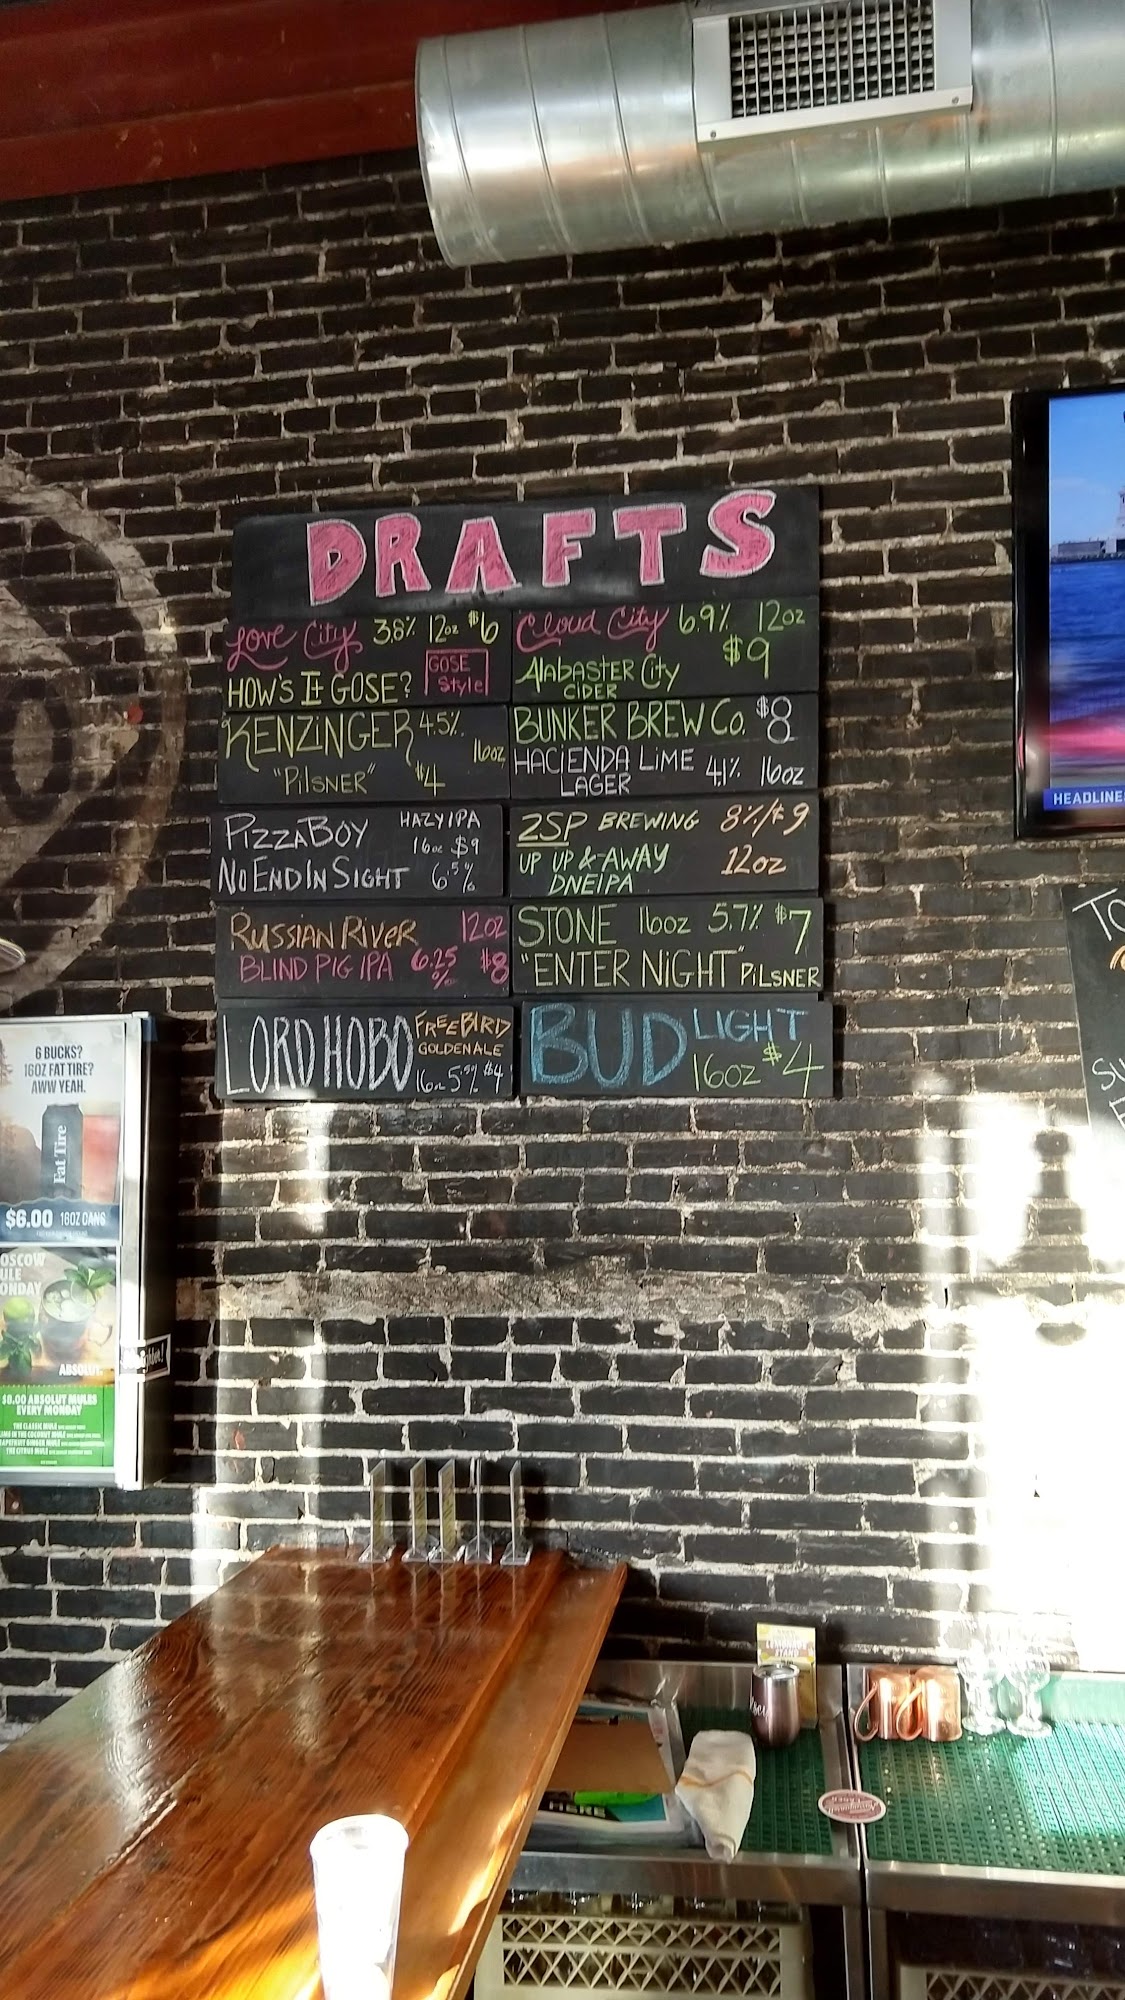 DRAFTS
Love City 3.8% 12oz $6
HOW'S It GOSE? GOSE Style
KENZINGER 4.5%
16oz
"PILSNER" $4
PIZZABOY HAZY IPA
16oz $9
NO END IN SIGHT 6.5%
RUSSIAN RIVER 12oz
BLIND PIG IPA 6.25% $8
LORD HOBO FREEBIRD
GOLDEN ALE
16oz 5.5% $4
Cloud City 6.9% 12oz
$9
Alabaster City
CIDER
BUNKER BREW CO. $8
HACIENDA LIME
LAGER 4.1% 16oz
2SP BREWING 8%/$9
UP UP & AWAY 12oz
DNEIPA
STONE 16oz 5.7% $7
"ENTER NIGHT" PILSNER
BUD LIGHT
16oz $4
HEADLINES
TO
SU
6 BUCKS?
16OZ FAT TIRE?
AWW YEAH.
Fat Tire
$6.00 16OZ CANS
OSCOW
ULE
ONDAY
ABSOLUT.
$8.00 ABSOLUT MULES
EVERY MONDAY
THE CLASSIC MULE
THE CITRUS MULE
HERE